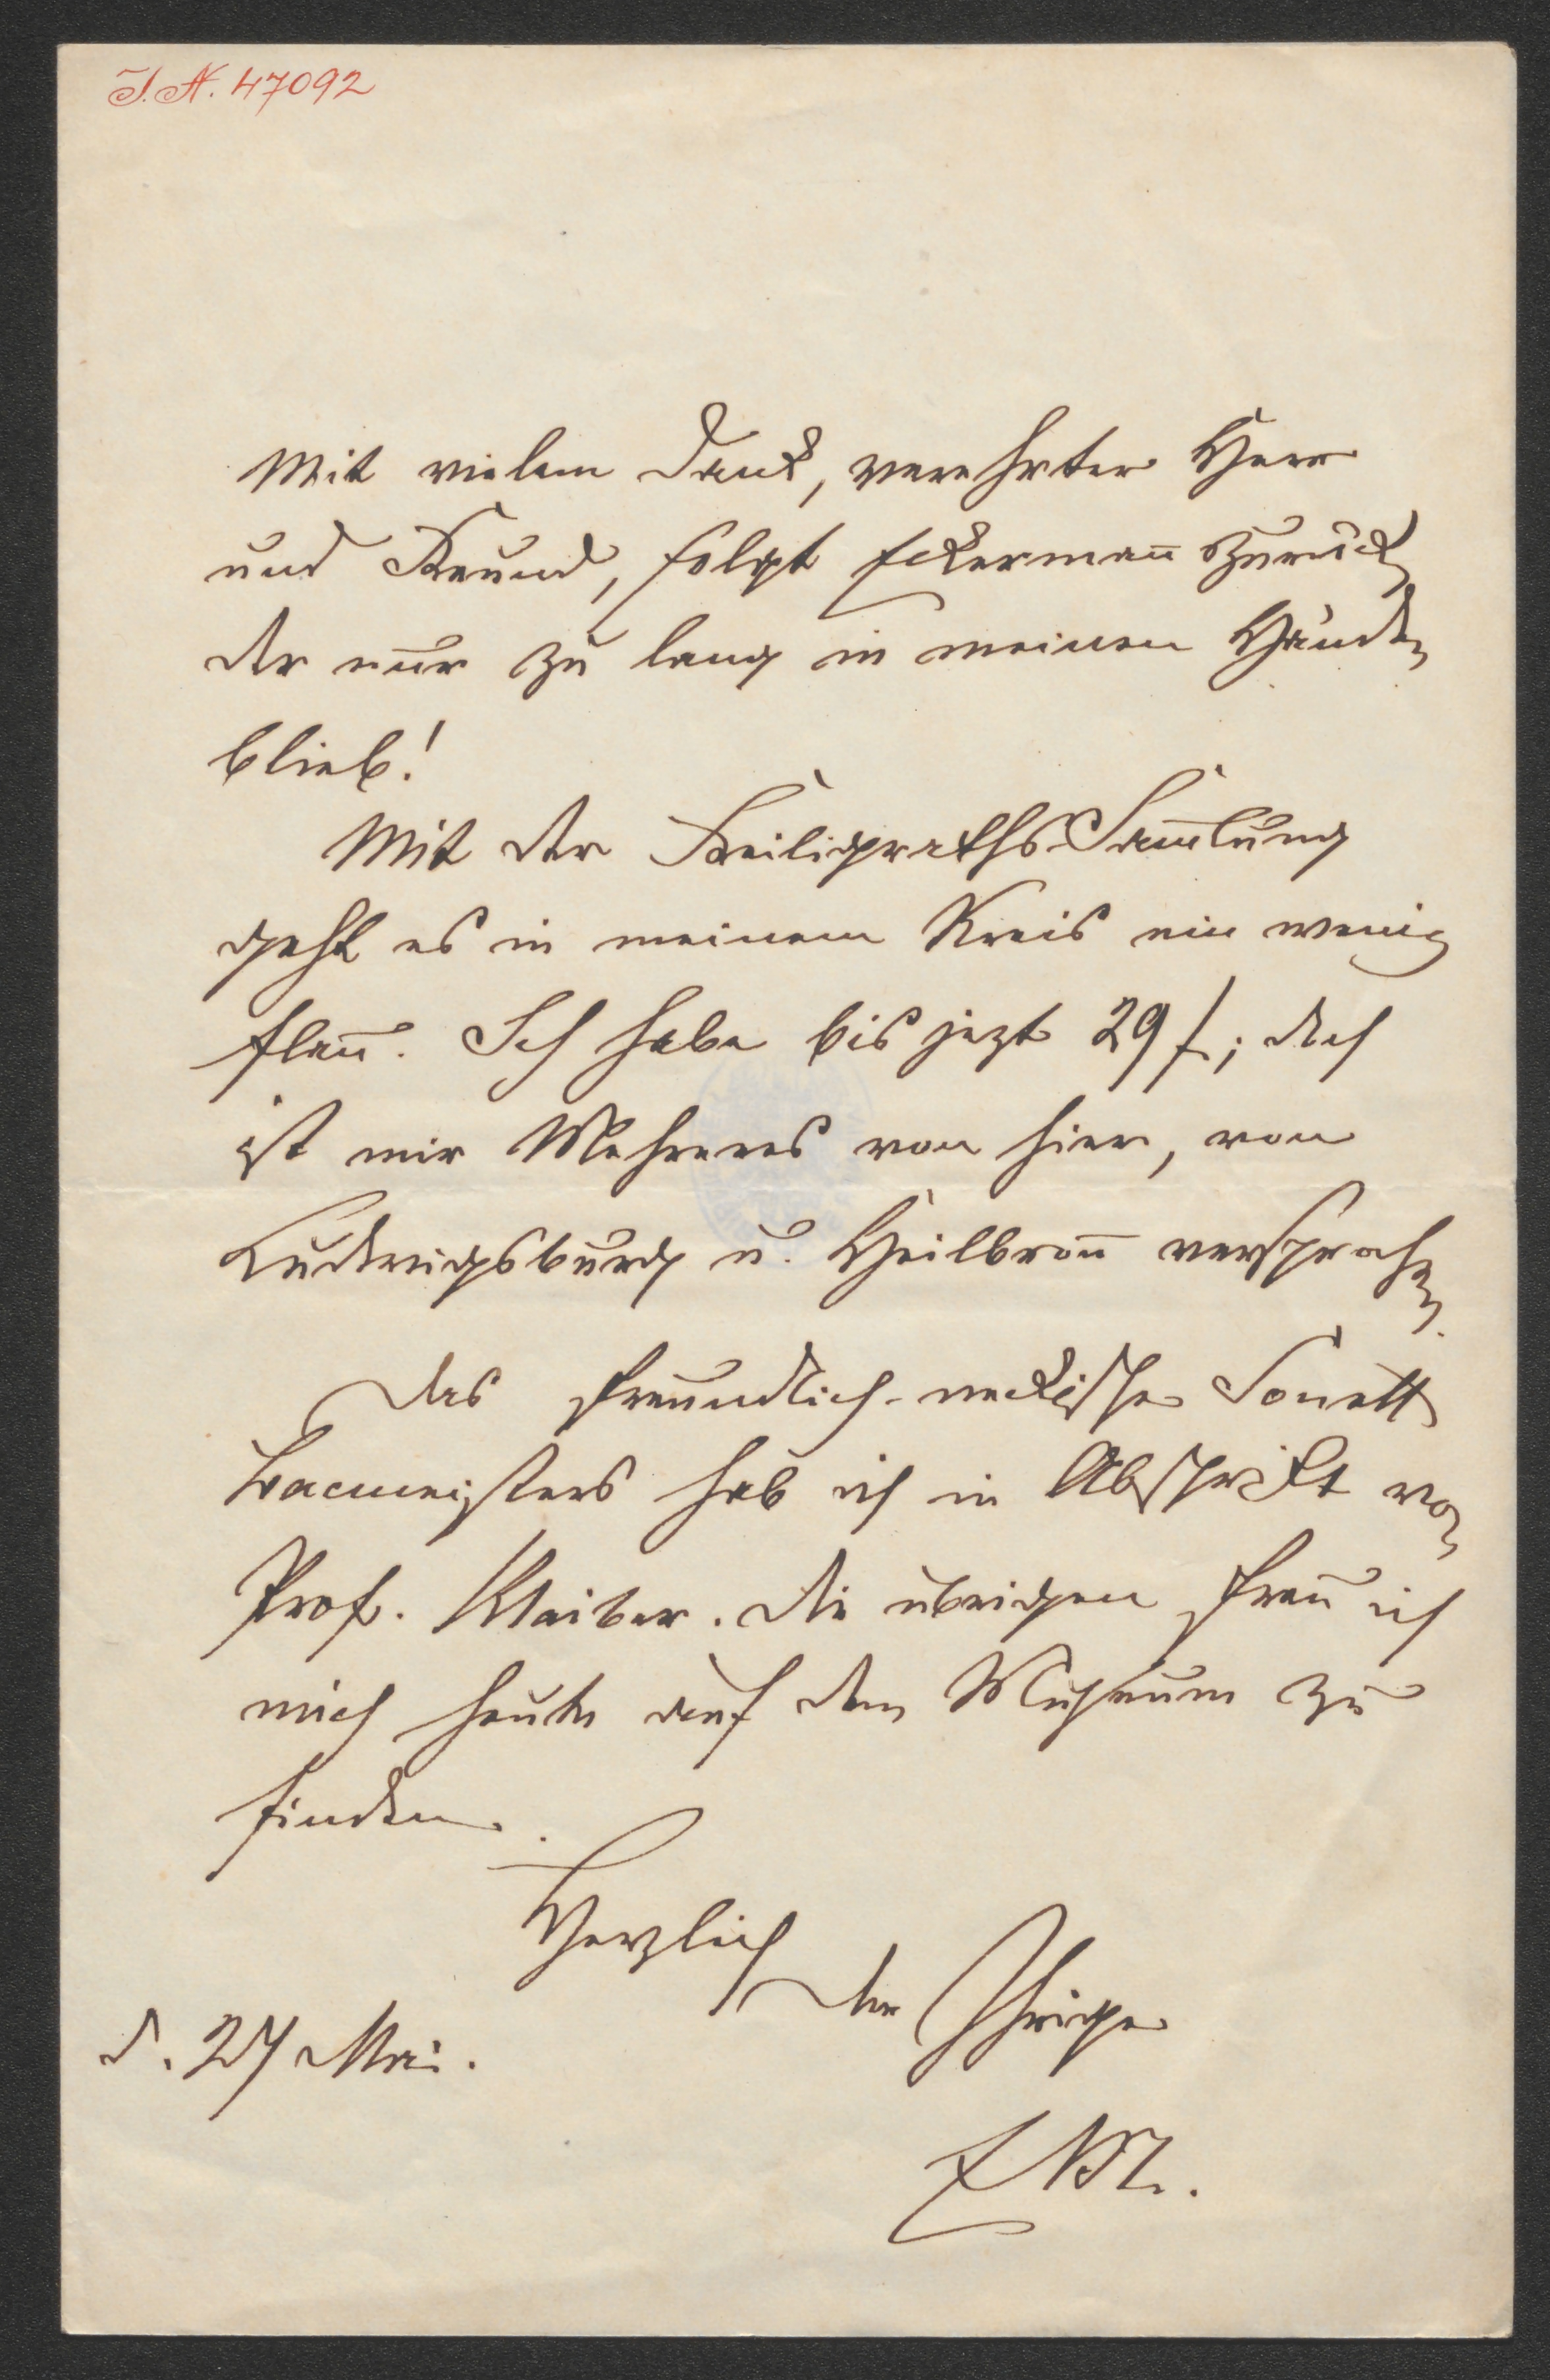 J. N. 47092
Mit vielem Dank, verehrter Herr
und Freund, folgt Eckermann zurück
der nur zu lang in meinen Händen
blieb!
Mit der Freiligraths Sam̄lung
geht es in meinem Kreis ein wenig
flau. Ich habe bis jezt 29 f.; doch
ist mir Mehreres von hier, von
Ludwigsburg u. Heilbron̄ versprochen.
Das freundlich-neckische Sonett
Bacmeisters hab ich in Abschrift von
Prof. Klaiber. Die übrigen freu ich
mich heute auf dem Museum zu
finden.
Herzlich
der Ihrige
d. 27 Mai.
E M.